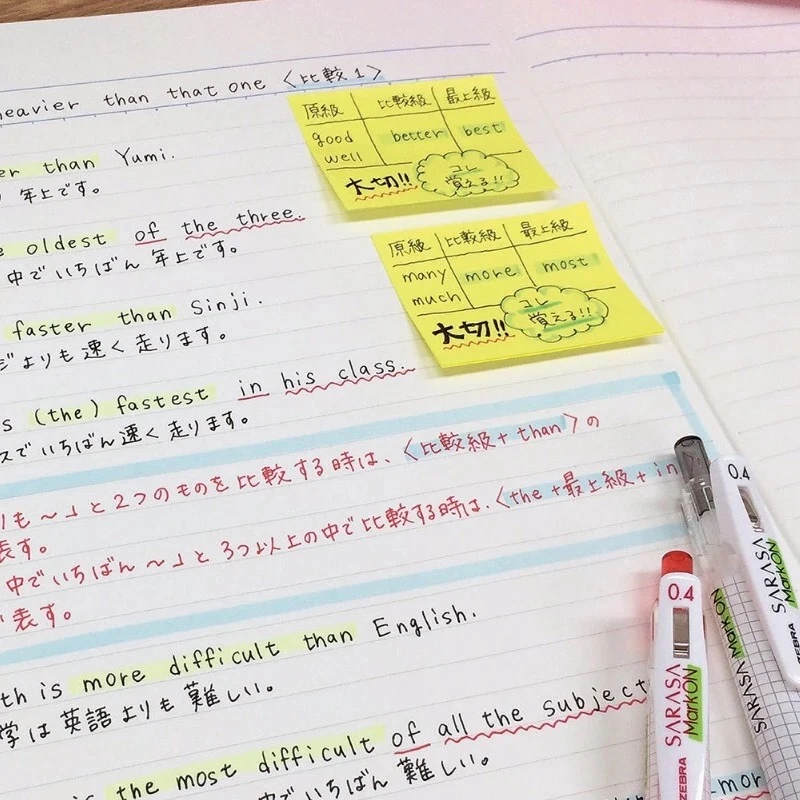 heavier than that one 〈比較1〉
er than Yumi.
年上です。
e oldest of the three.
中でいちばん年上です。
faster than Sinji.
ジよりも速く走ります。
s (the) fastest in his class.
スでいちばん速く走ります。
りも〜」と2つのものを比較する時は、〈比較級+than〉の
表す。
中でいちばん〜」と3つ以上の中で比較する時は、〈the+最上級+in
表す。
th is more difficult than English.
学は英語よりも難しい。
is the most difficult of all the subject
中でいちばん難しい。
原級 比較級 最上級
good better best
well
大切!! コレ
覚える!!
原級 比較級 最上級
many more most
much
大切!! コレ
覚える!!
0.4
SARASA
MarkON
ZEBRA
0.4
SARASA
MarkON
ZEBRA
SARASA MarkON